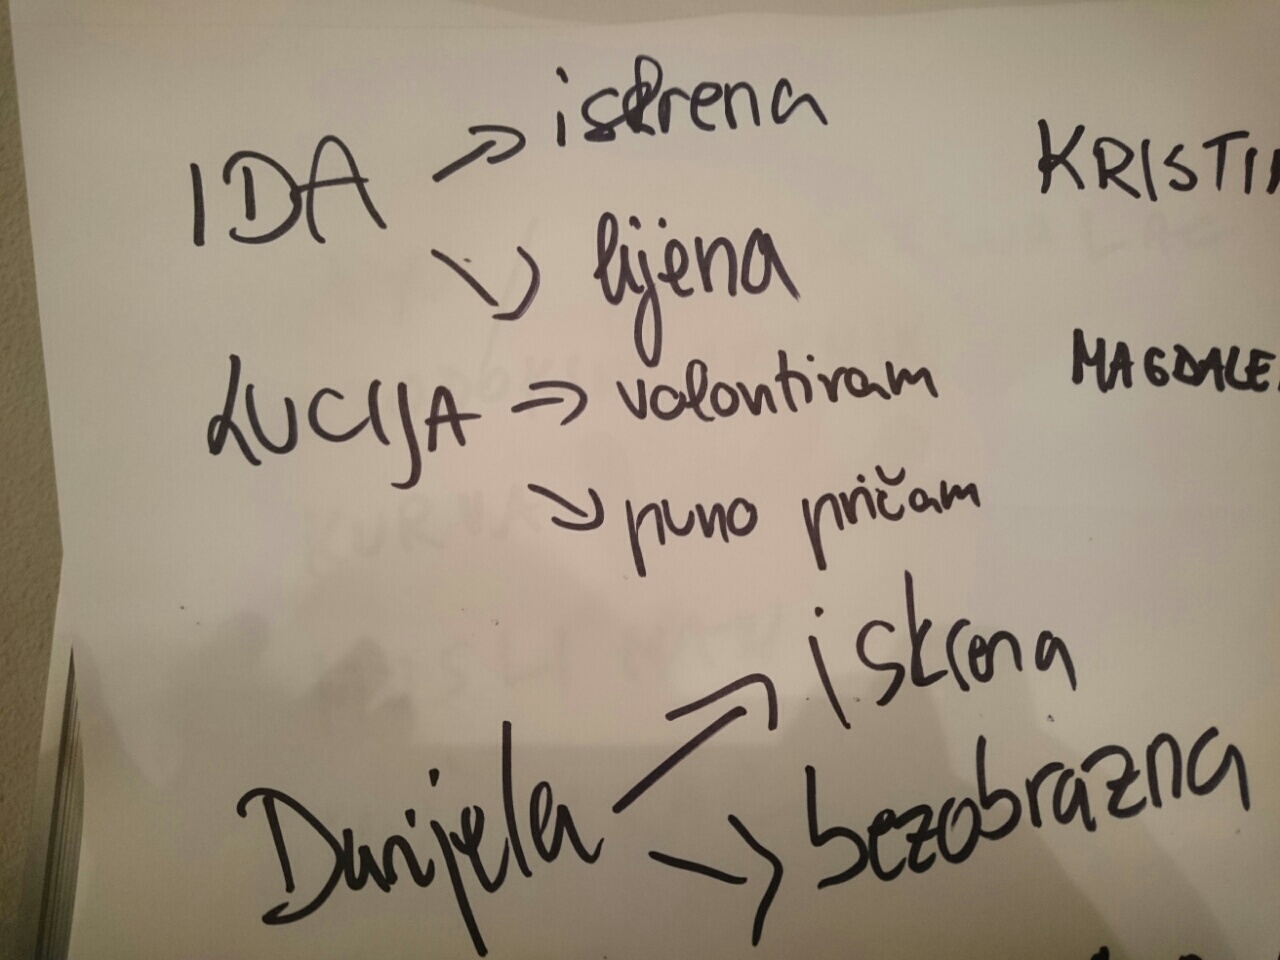 IDA → iskrena
↘ lijena
LUCIJA → volontiram
↘ puno pričam
Danijela ↗ iskrena
↘ bezobrazna
KRISTI
MAGDALE